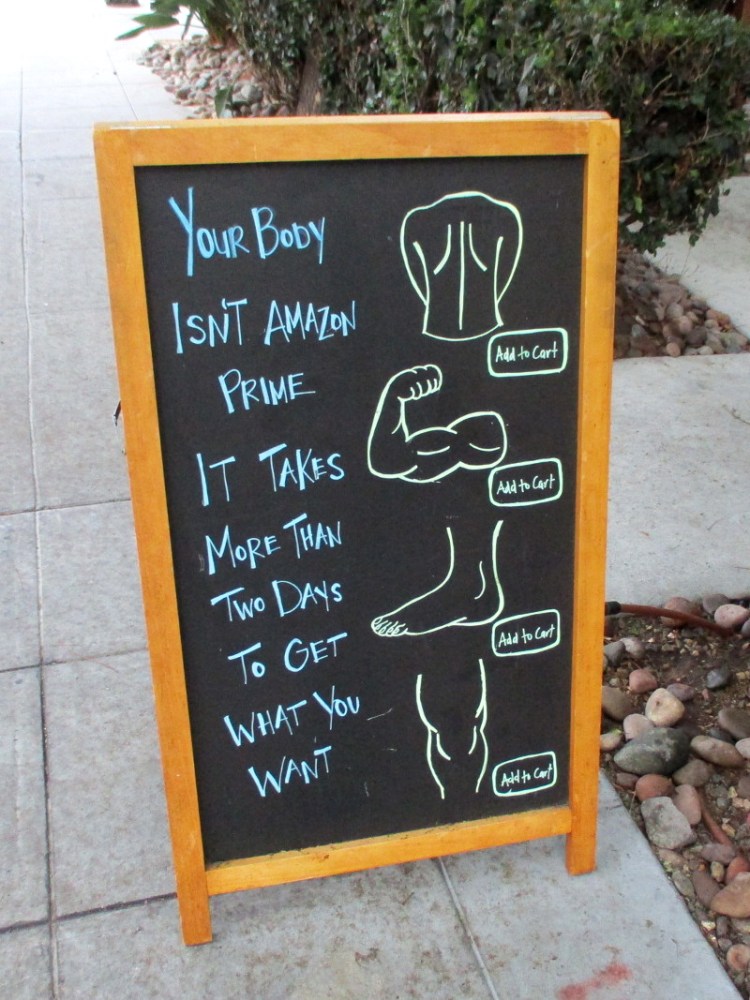 Your Body
Isn't Amazon
Prime
It Takes
More Than
Two Days
To Get
What You
Want
Add to Cart
Add to Cart
Add to Cart
Add to Cart